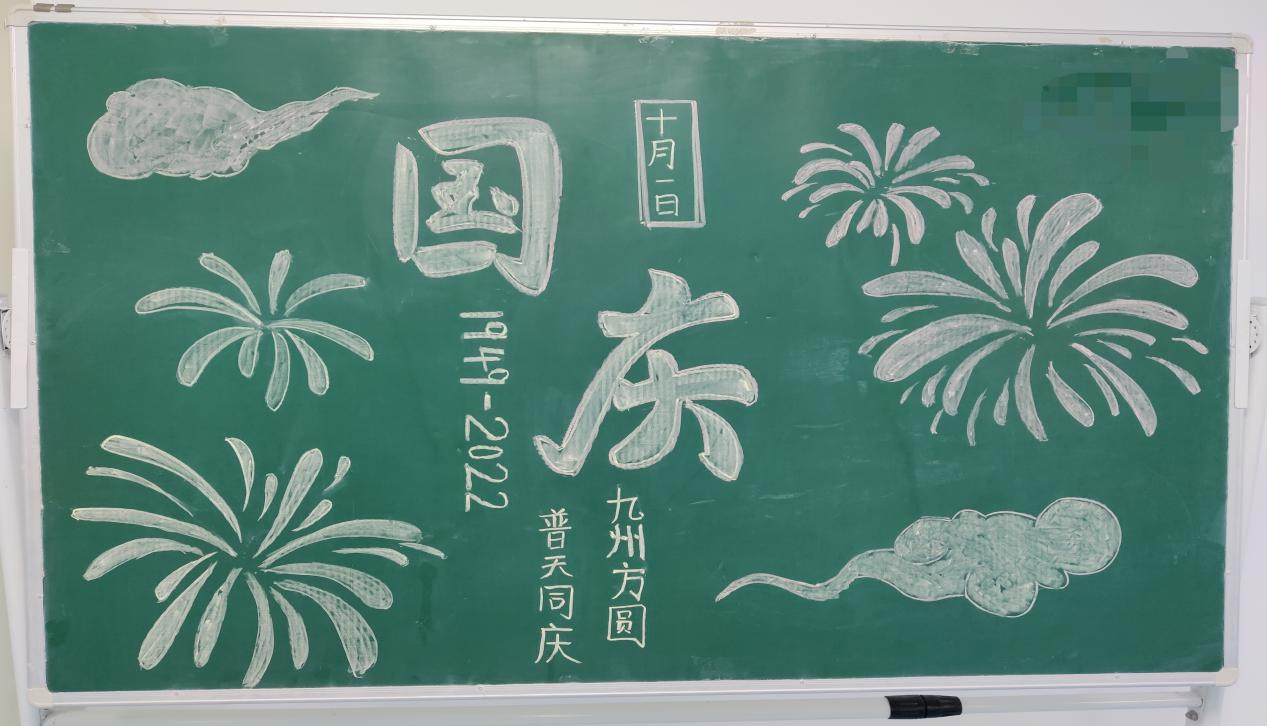 国庆
十月一日
1949-2022
九州方圆
普天同庆